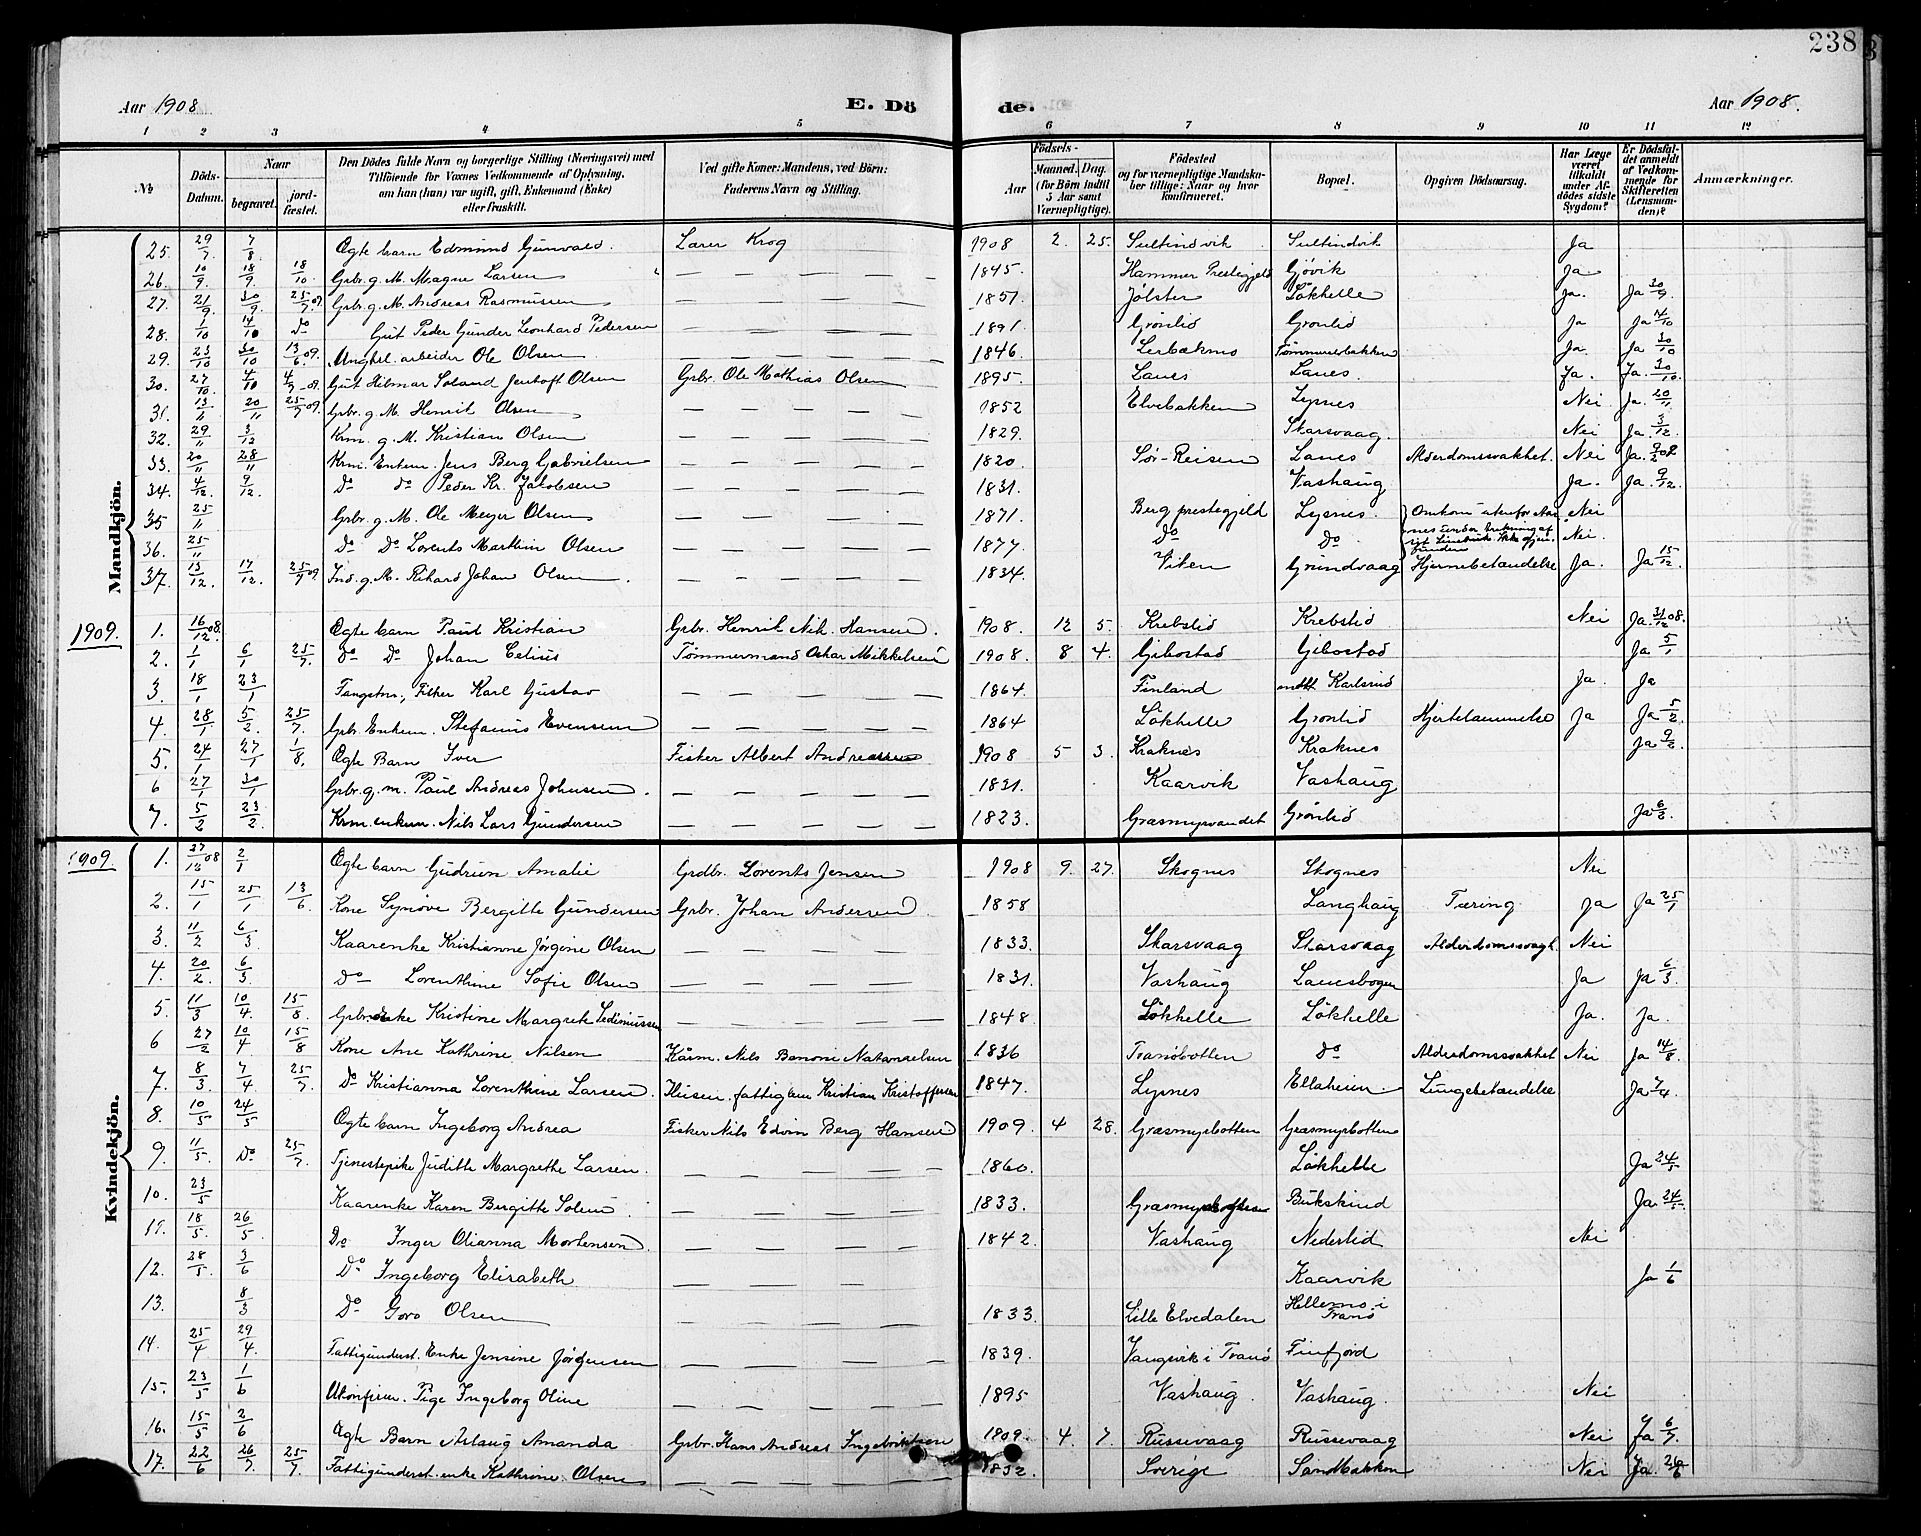 238
Aar 1908. E. Dö de. Aar 1908.
1 2 3 4 5 6 7 8 9 10 11 12
No Döds-Datum. Naar begravet. jordfæstet. Den Dödes fulde Navn og borgerlige Stilling (Næringsvei) med Tilföiende for Voxnes Vedkommende af Oplysning, om han (hun) var ugift, gift, Enkemand (Enke) eller fraskilt. Ved gifte Koner: Mandens, ved Börn: Faderens Navn og Stilling. Födsels- Aar Maaned. Dag. (for Börn indtil 5 Aar samt Værnepligtige). Födested og for værnepligtige Mandskaber tillige: Naar og hvor konfirmeret. Bopæl. Opgiven Dödsaarsag. Har Læge været tilkaldt under Afdödes sidste Sygdom? Er Dödsfaldet anmeldt af Vedkommende for Skifteretten (Lensmanden)? Anmærkninger.
Mandkjön.
25. 29/7 7/8 Ægte barn Edmund Gunvald. Lærer Krog 1908 2. 25. Sultindvik Sultindvik Ja
26. 10/9 18/9. 18/10 Grbr. g. M. Magne Larsen — — — — 1845. Hammer Prestegjeld Gjövik Ja
27. 21/9 30/9 25/7 09. Grbr. g. M. Andreas Rasmussen — — — — 1851. Jölster Lökhelle Ja. Ja 30/9
28. 1/10 14/10 do Gut Peder Gunder Leonhard Pedersen — — — — 1891. Grönlid Grönlid Ja Ja 14/10
29. 23/10 30/10 13/6 09. arbeider Ole Olsen — — — — 1846. Lerbækmo Tömmeresbakken Ja. Ja 30/10
30. 27/10 4/10 Gut Hilmar Soland Jentoft Olsen Grbr. Ole Mathias Olsen 1895. Lanes Lanes. Ja. Ja. 30/10.
31. 13/11 20/11 25/7 09. Grbr. g. M. Henrik Olsen — — — — 1852 Elvebakken Lysnes Nei Ja. 20/11
32. 29/11 3/12 Krm. g. M. Kristian Olsen — — — — 1829. Skarsvaag. Nei Ja. 3/12.
33. 20/11 28/11 Krm. Enkem. Jens Berg Gabrielsen — — — — 1820. Sör-Reisen Lanes Alderdomssvakhet. Nei Ja.
34. 4/12. 9/12. Do do Peder Kr. Jakobsen — — — — 1831. Vashaug Ja. Ja. 9/12.
35 25/11 Grbr. g. M. Ole Meyer Olsen — — — — 1871. Berg prestegjeld Lysnes. Omkom utenfor Nei
36. 25/11 Do Do Lorents Marthin Olsen — — — — 1877. Do Do Nei.
37. 13/12. 17/12. 25/7 09. Ind. g. M. Rikard Johan Olsen. — — — — 1834. Viken Grundvaag Hjernebetændelse Ja. Ja 15/12
1909. 1. 16/12 08. Ægte barn Paul Kristian Grbr. Henrik Nik. Hansen. 1908. 12 5. Krebslid Krebslid Nei Ja. 31/12 08.
2. 1/1 6/1 25/7. Do Do Johan Celius Tömmermand Oskar Mikkelsen 1908. 8 4. Gibostad Gibostad Ja 5/1
3. 18/1 23/1 Fisker Karl Gustav — — — — 1864. Finland Karlsrud Ja. Ja
4. 28/1 5/2. 25/7. Grbr. Enkem. Stefanus Evensen — — — — 1864 Lökhelle Grönlid Hjertelammelse Ja Ja 5/2.
5. 24/1 27/1 1/8. Ægte Barn Iver Fisker Albert Andreassen 1908 5 3. Kraknes Kraknes Ja 9/2.
6 27/1 30/1 Grbr. g. m. Paul Andreas Johnsen. — — — — 1831. Kaarvik Vashaug
7. 5/2 23/2. Krm. enkem. Nils Lars Gundersen — — — — 1823. Græsmyrvandet Grönlid Ja 6/2.
Kvindekjön.
1909. 1. 27/12 08 2/1 Ægte barn Gudrun Amalie Grdbr. Lorents Jensen 1908 9. 27. Skognes Skognes Nei
2. 15/1 25/1 13/6 Kone Synöve Bergitte Gundersen Grbr. Johan Andersen. 1858 Langhaug Tæring Ja Ja 25/1
3. 11/2 6/3. Kaarenke Kristianne Jörgine Olsen — — — — 1833. Skarsvaag Skarsvaag Alderdomssvagh. Nei
4. 20/2. 6/3. Do Lorenthine Sofie Olsen — — — — 1831. Vashaug Lanesbogen Ja Ja 6/3.
5. 11/3 10/4. 15/8. Grbr. enke Kristine Margrete — — — — 1848. Lökhelle Lökhelle Ja. Ja.
6 27/2 10/4 15/8 Kone Ane Kathrine Nilsen Kårm. Nils Benoni Natanaelsen 1836 Tranöbotten Do Alderdomssvakhet Nei Ja 14/8.
7. 8/3. 7/4. 25/7. Do Kristianna Lorenthine Larsen. fattiglem Kristian Kristoffersen 1847. Lysnes Ellaheim. Lungebetændelse Ja. 7/4.
8. 10/5 24/5 Ægte barn Ingeborg Andrea Fisker Nils Edvin Berg Hansen 1909. 4 28. Græsmyrbotten Græsmyrbotten
9. 11/5. Do 25/7 Tjenestepike Judithe Margrethe Larsen. — — — — 1860. Lökhelle Ja 24/5
10. 23/5 Kaarenke Karen Bergitte Solum — — — — 1833. Bukskind Ja. 24/5.
11. 18/5. 26/5. Do Inger Olianna Mortensen. — — — — 1842. Vashaug Nederlid Nei
12. 28/5. 3/6 Do Ingeborg Elisabeth — — — — Kaarvik Ja 1/6
13. 8/3 Do Goro Olsen — — — — 1833. Lille Elvedalen Hellemo i Tranö
14. 25/4 29/4. Fattigunderst. Enke Jensine Jörgensen — — — — 1839. Vangsvik i Tranö Finfjord
15. 23/5 1/6 Ukonfirm. Pige Ingeborg Oline — — — — 1895 Vashaug. Vashaug. Nei
16. 15/5 2/6 Ægte Barn Aslaug Amanda Grbr. Hans Andreas Ingebrigtsen 1909. 4. 7. Russevaag Russevaag Nei Ja 6/7
17. 22/6 26/7. 25/7. Fattigunderst. enke Kathrine Olsen — — — — 1832. Sverige Sandbakken Nei Ja. 26/6